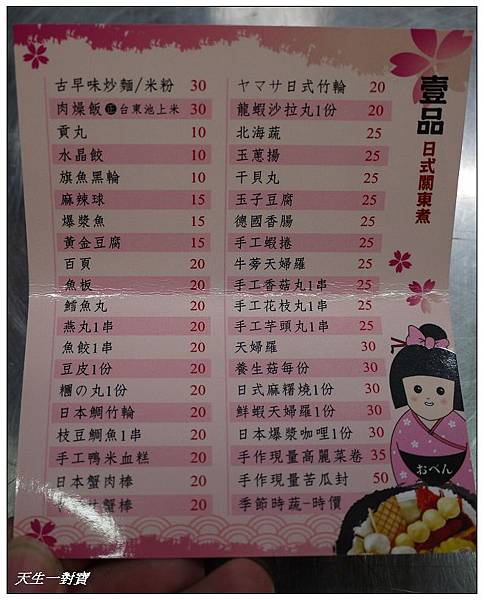 壹品
日式關東煮
古早味炒麵/米粉 30
肉燥飯㊣台東池上米 30
貢丸 10
水晶餃 10
旗魚黑輪 10
麻辣球 15
爆漿魚 15
黃金豆腐 15
百頁 20
魚板 20
鱈魚丸 20
燕丸1串 20
魚餃1串 20
豆皮1份 20
糰の丸1份 20
日本鯛竹輪 20
枝豆鯛魚1串 20
手工鴨米血糕 20
日本蟹肉棒 20
蟹棒 20
ヤマサ日式竹輪 20
龍蝦沙拉丸1份 20
北海蔬 25
玉蔥揚 25
干貝丸 25
玉子豆腐 25
德國香腸 25
手工蝦捲 25
牛蒡天婦羅 25
手工香菇丸1串 25
手工花枝丸1串 25
手工芋頭丸1串 25
天婦羅 30
養生菇每份 30
日式麻糬燒1份 30
鮮蝦天婦羅1份 30
日本爆漿咖哩1份 30
手作現量高麗菜卷 35
手作現量苦瓜封 50
季節時蔬-時價
おべん
天生一對寶